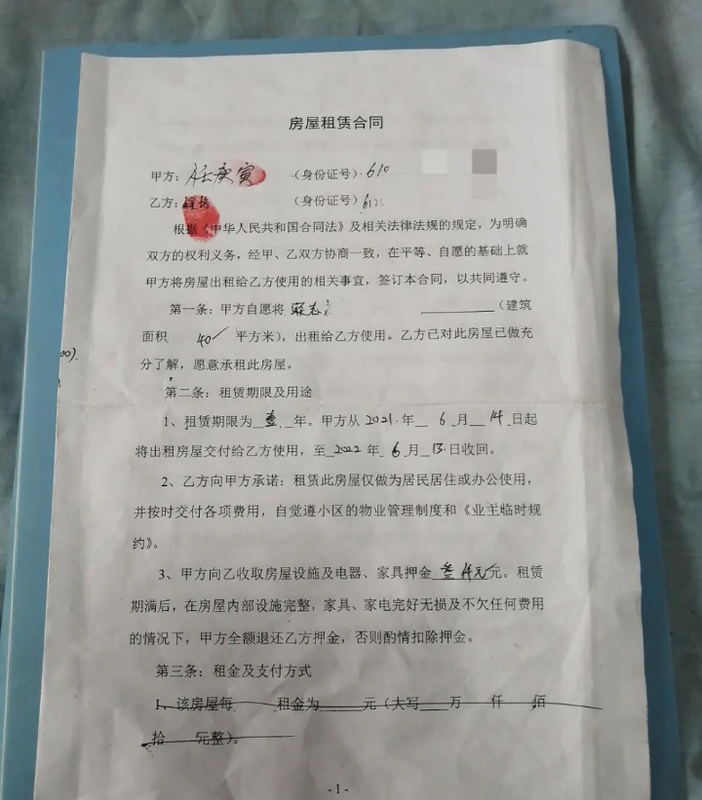 房屋租赁合同
甲方：任庚寅 （身份证号）：610
乙方： （身份证号）612
根据《中华人民共和国合同法》及相关法律法规的规定，为明确
双方的权利义务，经甲、乙双方协商一致，在平等、自愿的基础上就
甲方将房屋出租给乙方使用的相关事宜，签订本合同，以共同遵守。
第一条：甲方自愿将 （建筑
面积 40 平方米），出租给乙方使用。乙方已对此房屋已做充
00).
分了解，愿意承租此房屋。
第二条：租赁期限及用途
1、租赁期限为 壹 年。甲方从 2021 年 6 月 14 日起
将出租房屋交付给乙方使用，至 2022 年 6 月 13 日收回。
2、乙方向甲方承诺：租赁此房屋仅做为居民居住或办公使用，
并按时交付各项费用，自觉遵小区的物业管理制度和《业主临时规
约》。
3、甲方向乙收取房屋设施及电器、家具押金 叁仟元 元。租赁
期满后，在房屋内部设施完整，家具、家电完好无损及不欠任何费用
的情况下，甲方全额退还乙方押金，否则酌情扣除押金。
第三条：租金及支付方式
1、该房屋每 租金为 元（大写 万 仟 佰
拾 元整）。
- 1 -